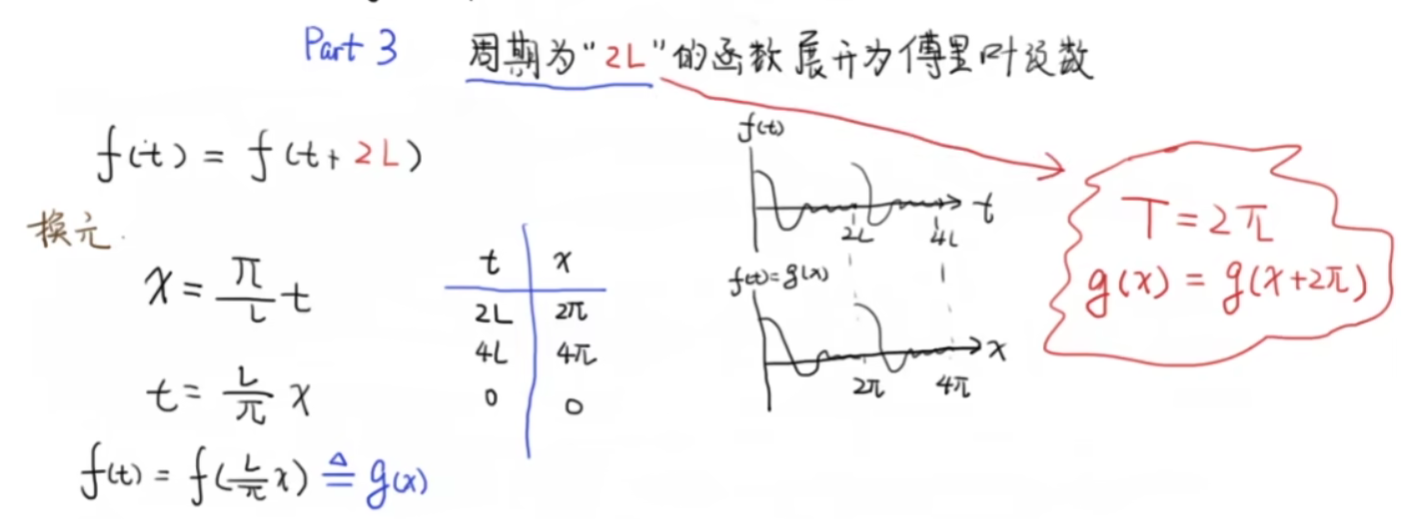 Part 3 周期为"2L"的函数展开为傅里叶级数
f(t) = f(t+2L)
换元.
x = π/L t
t = L/π x
f(t) = f(L/π x) ≜ g(x)
t x
2L 2π
4L 4π
0 0
f(t)
t
2L 4L
f(t)=g(x)
x
2π 4π
T=2π
g(x) = g(x+2π)